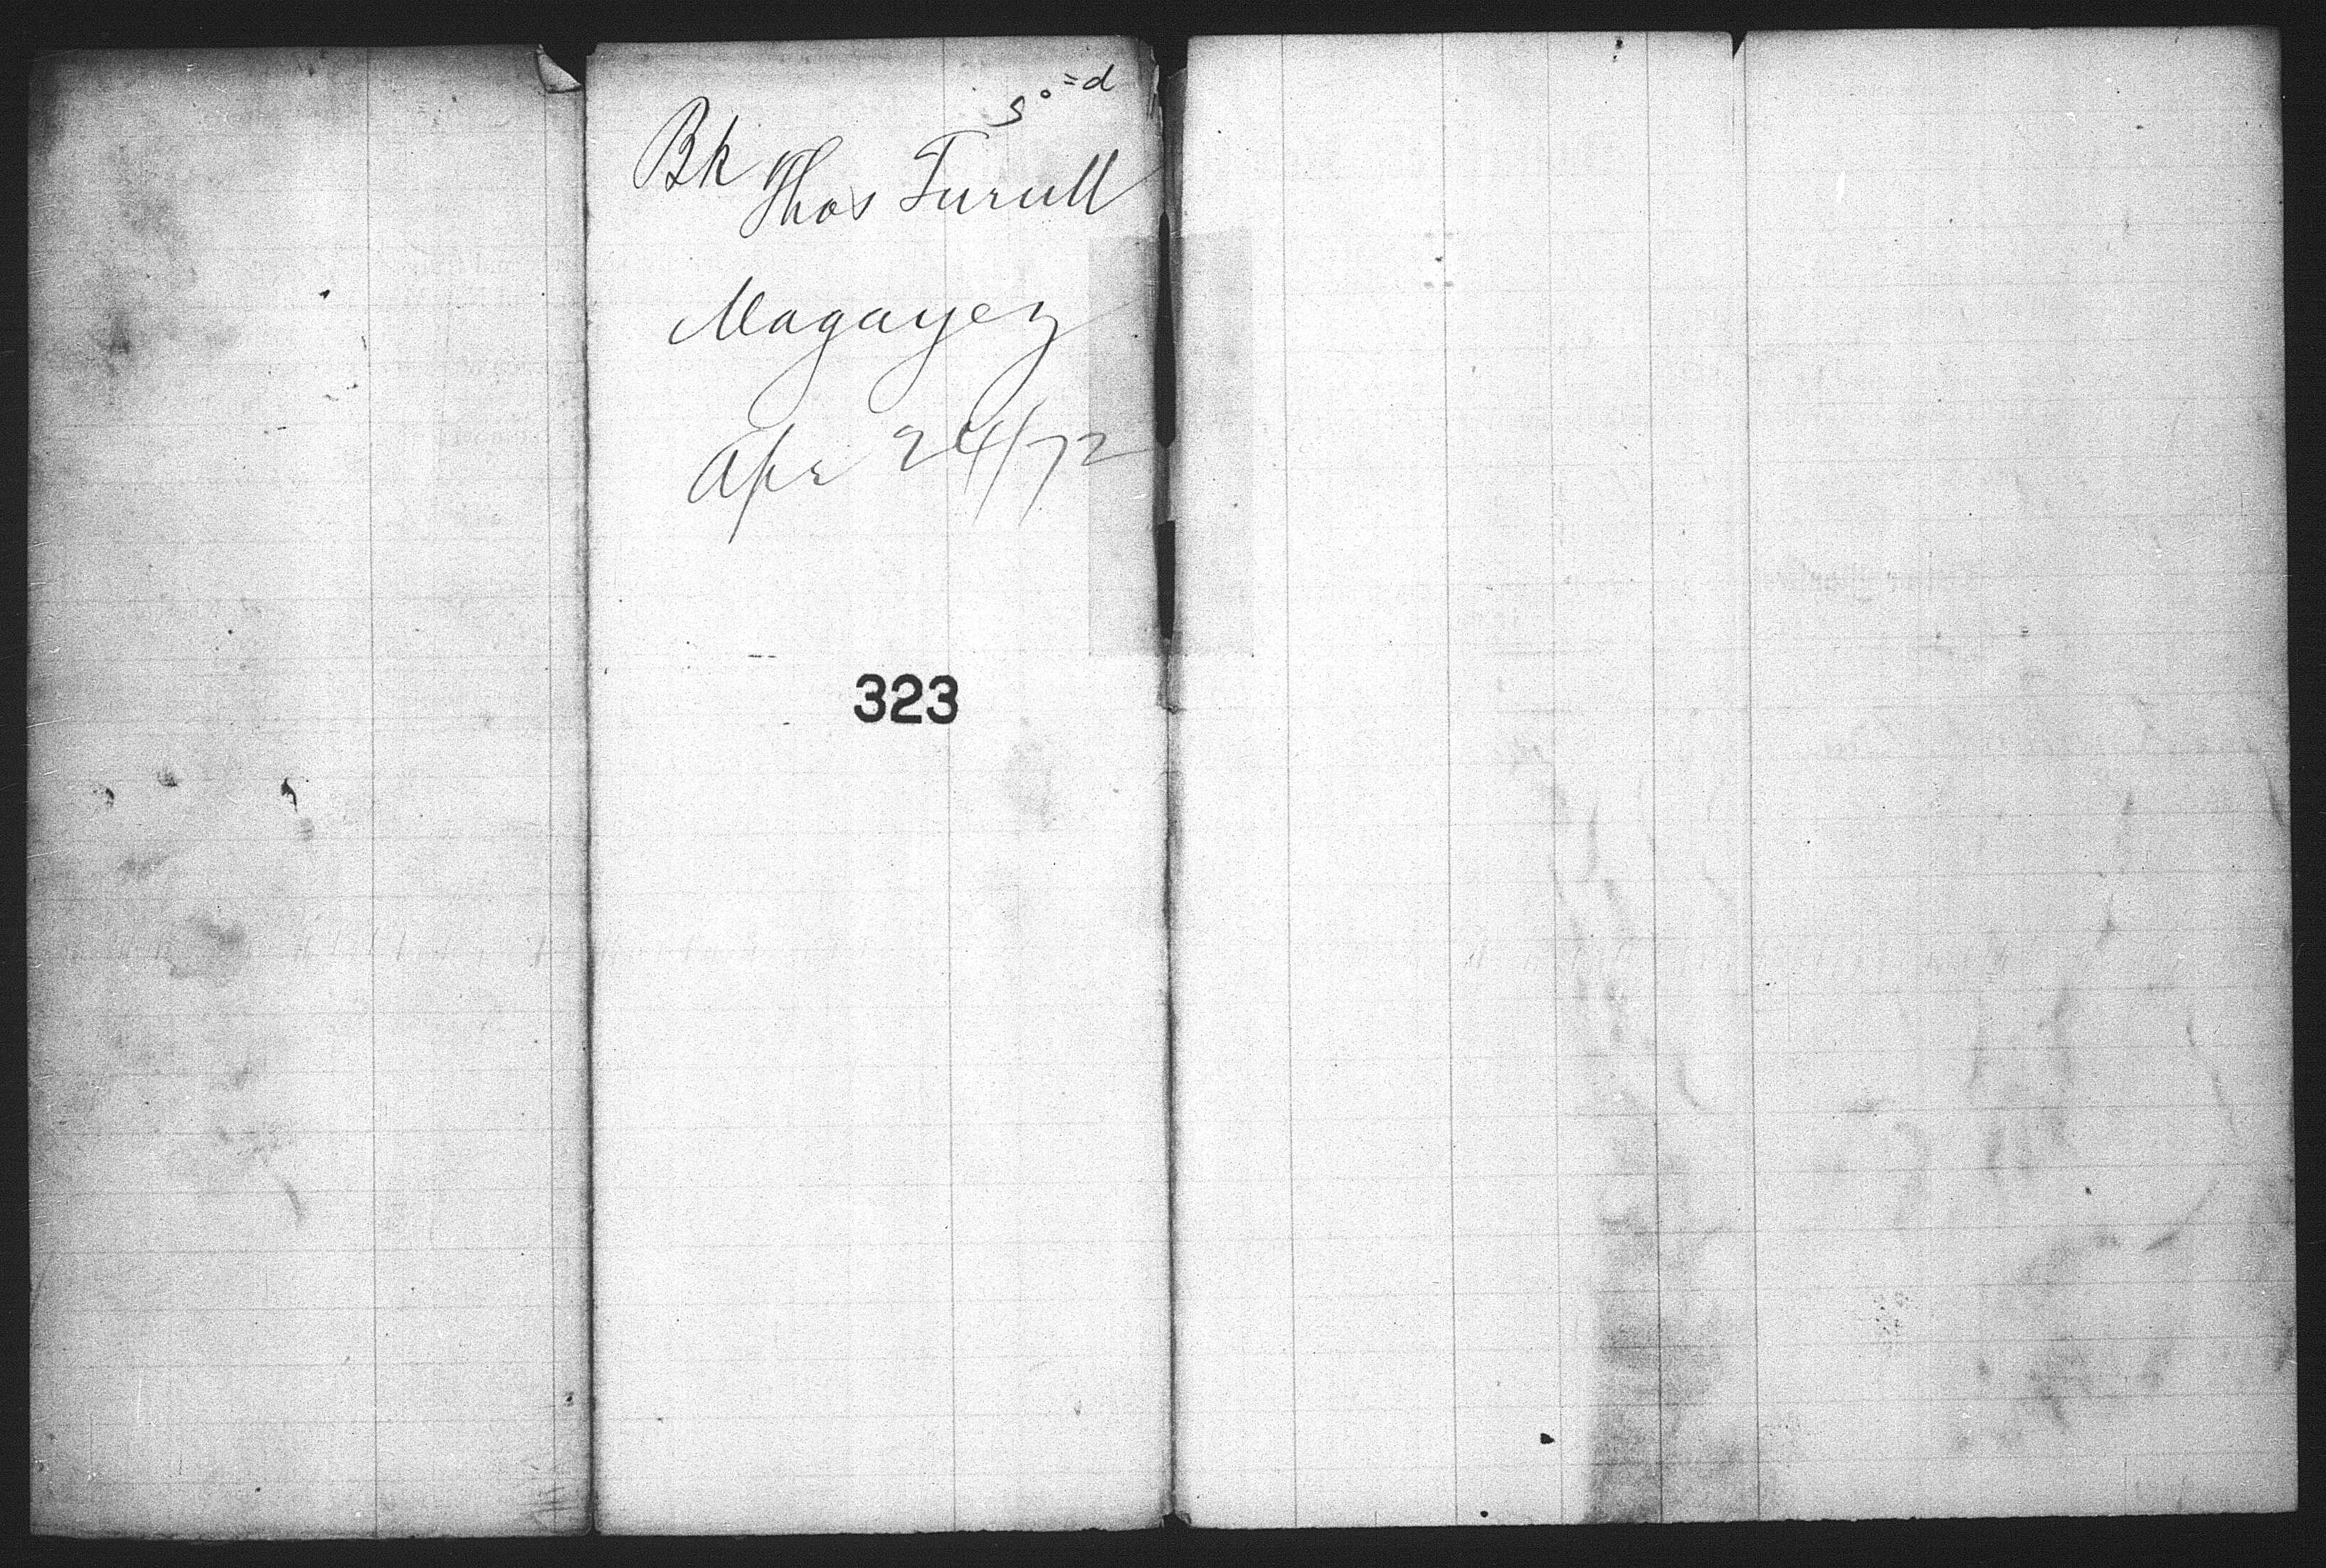 Bk Thos Turull
Magayez
Apr 24/72
323